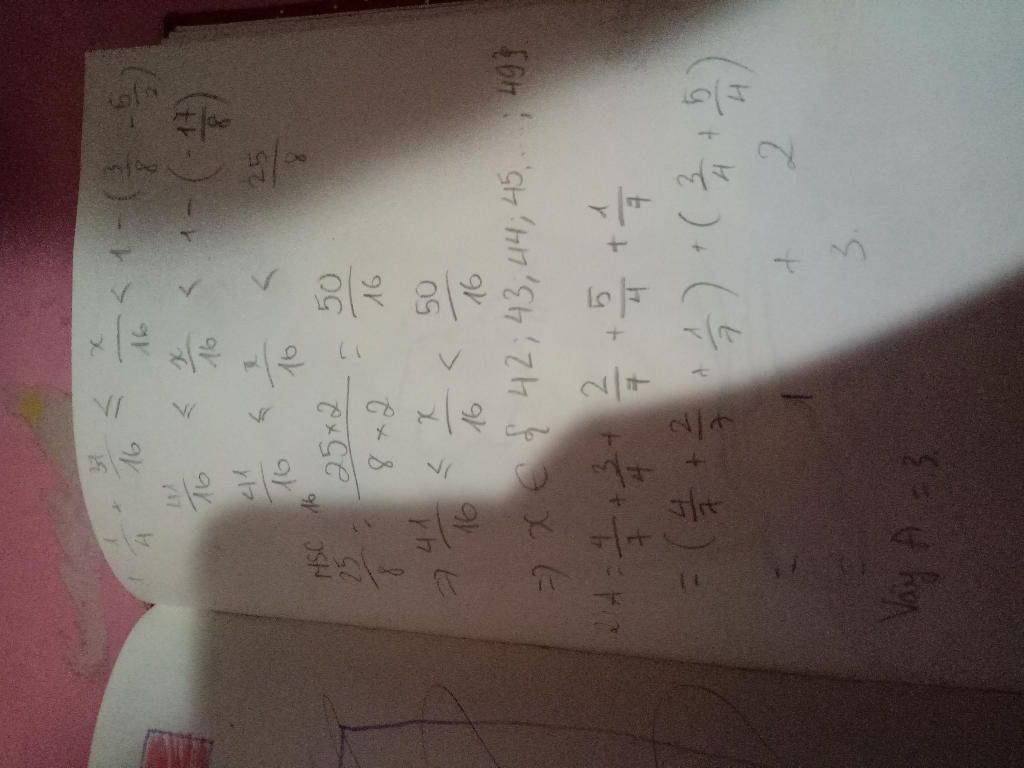 1/4 + 37/16 ≤ x/16 < 1 - (3/8 - 5/2)
41/16 ≤ x/16 < 1 - (-17/8)
41/16 ≤ x/16 < 25/8
MSC 16
25/8 = 25×2/8×2 = 50/16
=> 41/16 ≤ x/16 < 50/16
=> x ∈ { 42; 43; 44; 45...; 49}
2/ A = 4/7 + 3/4 + 2/7 + 5/4 + 1/7
= (4/7 + 2/7 + 1/7) + (3/4 + 5/4)
= 1 + 2
= 3.
Vậy A = 3.